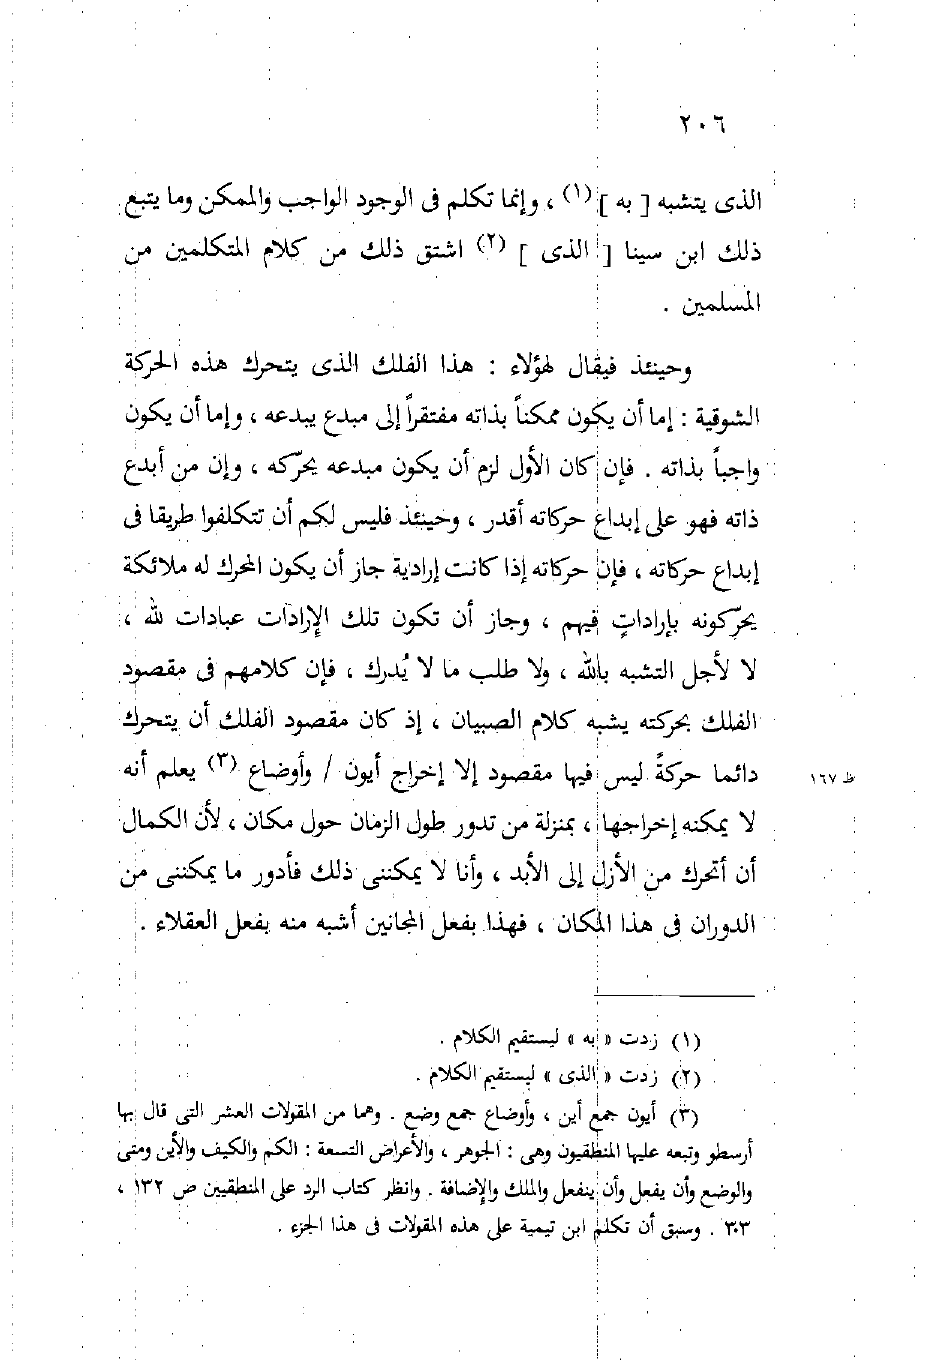 ٢٠٦
الذى يتشبه [ به ] (١) ، وإنما تكلم فى الوجود الواجب والممكن وما يتبع
ذلك ابن سينا [ الذى ] (٢) اشتق ذلك من كلام المتكلمين من
المسلمين .
وحينئذ فيقال لهؤلاء : هذا الفلك الذى يتحرك هذه الحركة
الشوقية : إما أن يكون ممكناً بذاته مفتقراً إلى مبدع يبدعه ، وإما أن يكون
واجباً بذاته . فإن كان الأول لزم أن يكون مبدعه يحرّكه ، وإن من أبدع
ذاته فهو على إبداع حركاته أقدر ، وحينئذ فليس لكم أن تتكلفوا طريقا فى
إبداع حركاته ، فإن حركاته إذا كانت إرادية جاز أن يكون المحرك له ملائكة
يحرّكونه بإراداتٍ فيهم ، وجاز أن تكون تلك الإرادات عبادات لله ،
لا لأجل التشبه بالله ، ولا طلب ما لا يُدرك ، فإن كلامهم فى مقصود
الفلك بحركته يشبه كلام الصبيان ، إذ كان مقصود الفلك أن يتحرك
دائما حركةً ليس فيها مقصود إلا إخراج أيون / وأوضاع (٣) يعلم أنه
ظ ١٦٧
لا يمكنه إخراجها ، بمنزلة من تدور طول الزمان حول مكان ، لأن الكمال
أن أتحرك من الأزل إلى الأبد ، وأنا لا يمكننى ذلك فأدور ما يمكننى من
الدوران فى هذا المكان ، فهذا بفعل المجانين أشبه منه بفعل العقلاء .
(١) زدت « به » ليستقيم الكلام .
(٢) زدت « الذى » ليستقيم الكلام .
(٣) أيون جمع أين ، وأوضاع جمع وضع . وهما من المقولات العشر التى قال بها
أرسطو وتبعه عليها المنطقيون وهى : الجوهر ، والأعراض التسعة : الكم والكيف والأين ومتى
والوضع وأن يفعل وأن ينفعل والملك والإضافة . وانظر كتاب الرد على المنطقيين ص ١٣٢ ،
٣٠٣ . وسبق أن تكلم ابن تيمية على هذه المقولات فى هذا الجزء .